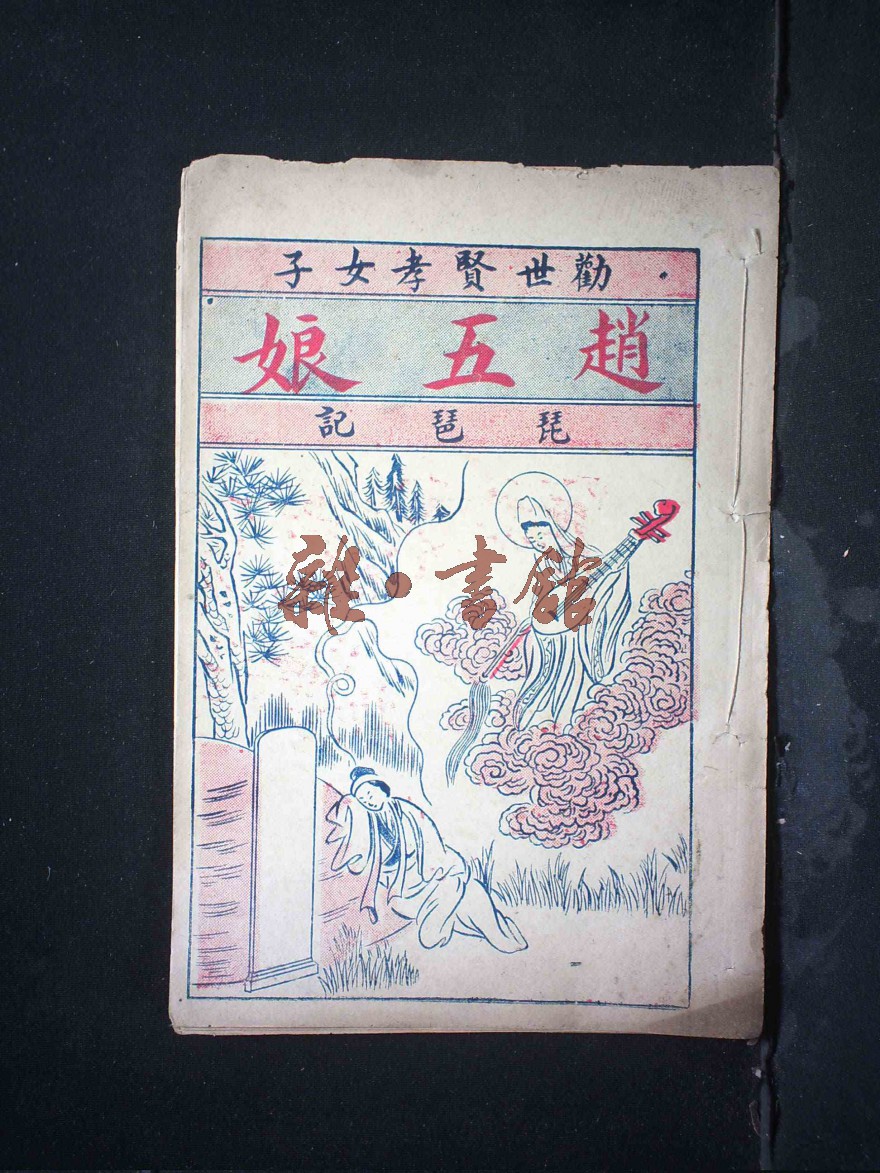 勸世賢孝女子
趙五娘
琵琶記
雜·書館